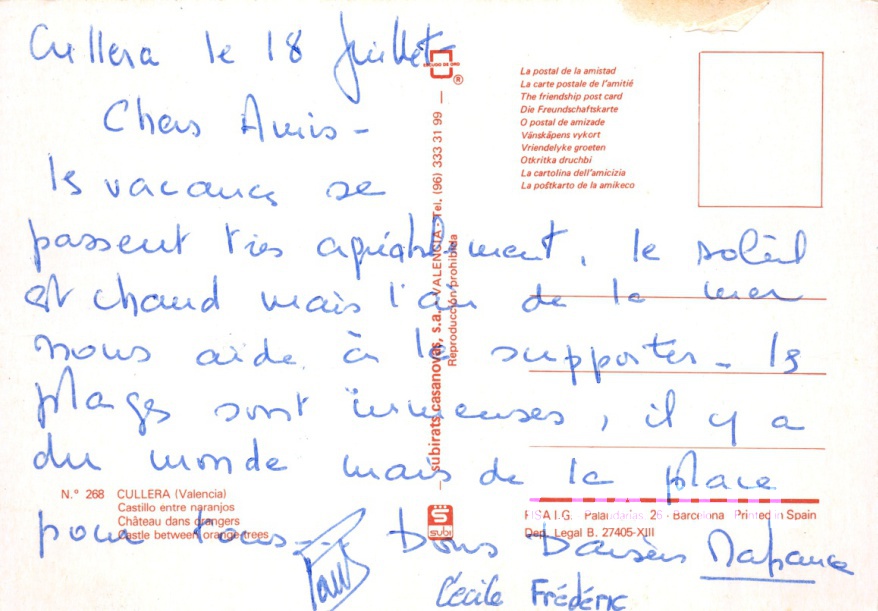 Cullera le 18 Juillet
Chers Amis -
les vacances se
passent très agréablement, le soleil
est chaud mais l'air de la mer
nous aide à le supporter - les
plages sont immenses, il y a
du monde mais de la place
pour tous... Bons Baisers
Cécile Frédéric
ESCUDO DE ORO
®
subirats casanovas, s.a. - VALENCIA - Tel. (96) 333 31 99
Reproducción prohibida
SUBI
La postal de la amistad
La carte postale de l'amitié
The friendship post card
Die Freundschaftskarte
O postal de amizade
Vänskäpens vykort
Vriendelyke groeten
Otkritka druchbi
La cartolina dell'amicizia
La poŝtkarto de la amikeco
N.º 268 CULLERA (Valencia)
Castillo entre naranjos
Château dans orangers
Castle between orange-trees
FISA I.G. Palaudarias, 26 - Barcelona Printed in Spain
Dep. Legal B. 27405-XIII